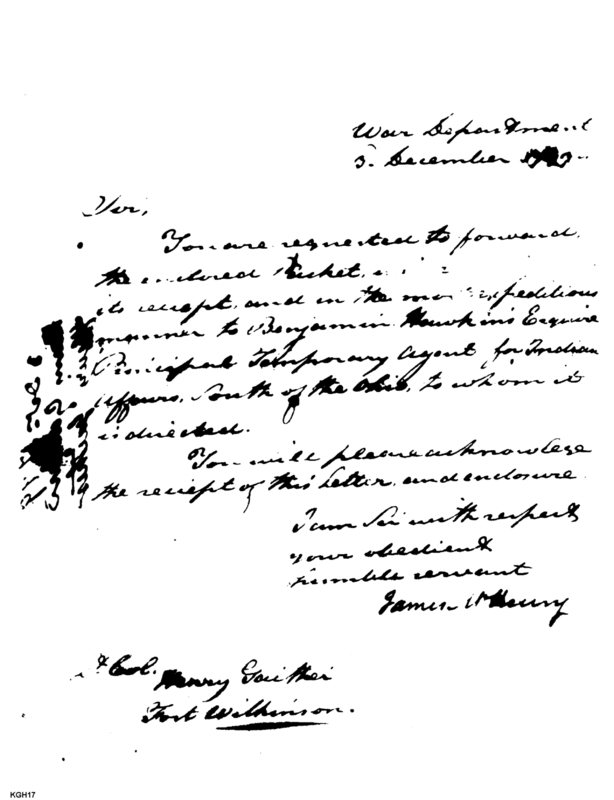 War Department
5. December
Sir,
You are requested to forward
the enclosed Packet,
its receipt, and in the most expeditious
manner to Benjamin Hawkins Esquire
Principal Temporary Agent for Indian
Affairs, South of the Ohio, to whom it
is directed.
You will please acknowlege
the receipt of this Letter, and enclosure
I am Sir with respect
your obedient
humble servant
James McHenry
Lt Col. Henry Gaither
Fort Wilkinson.
KGH17